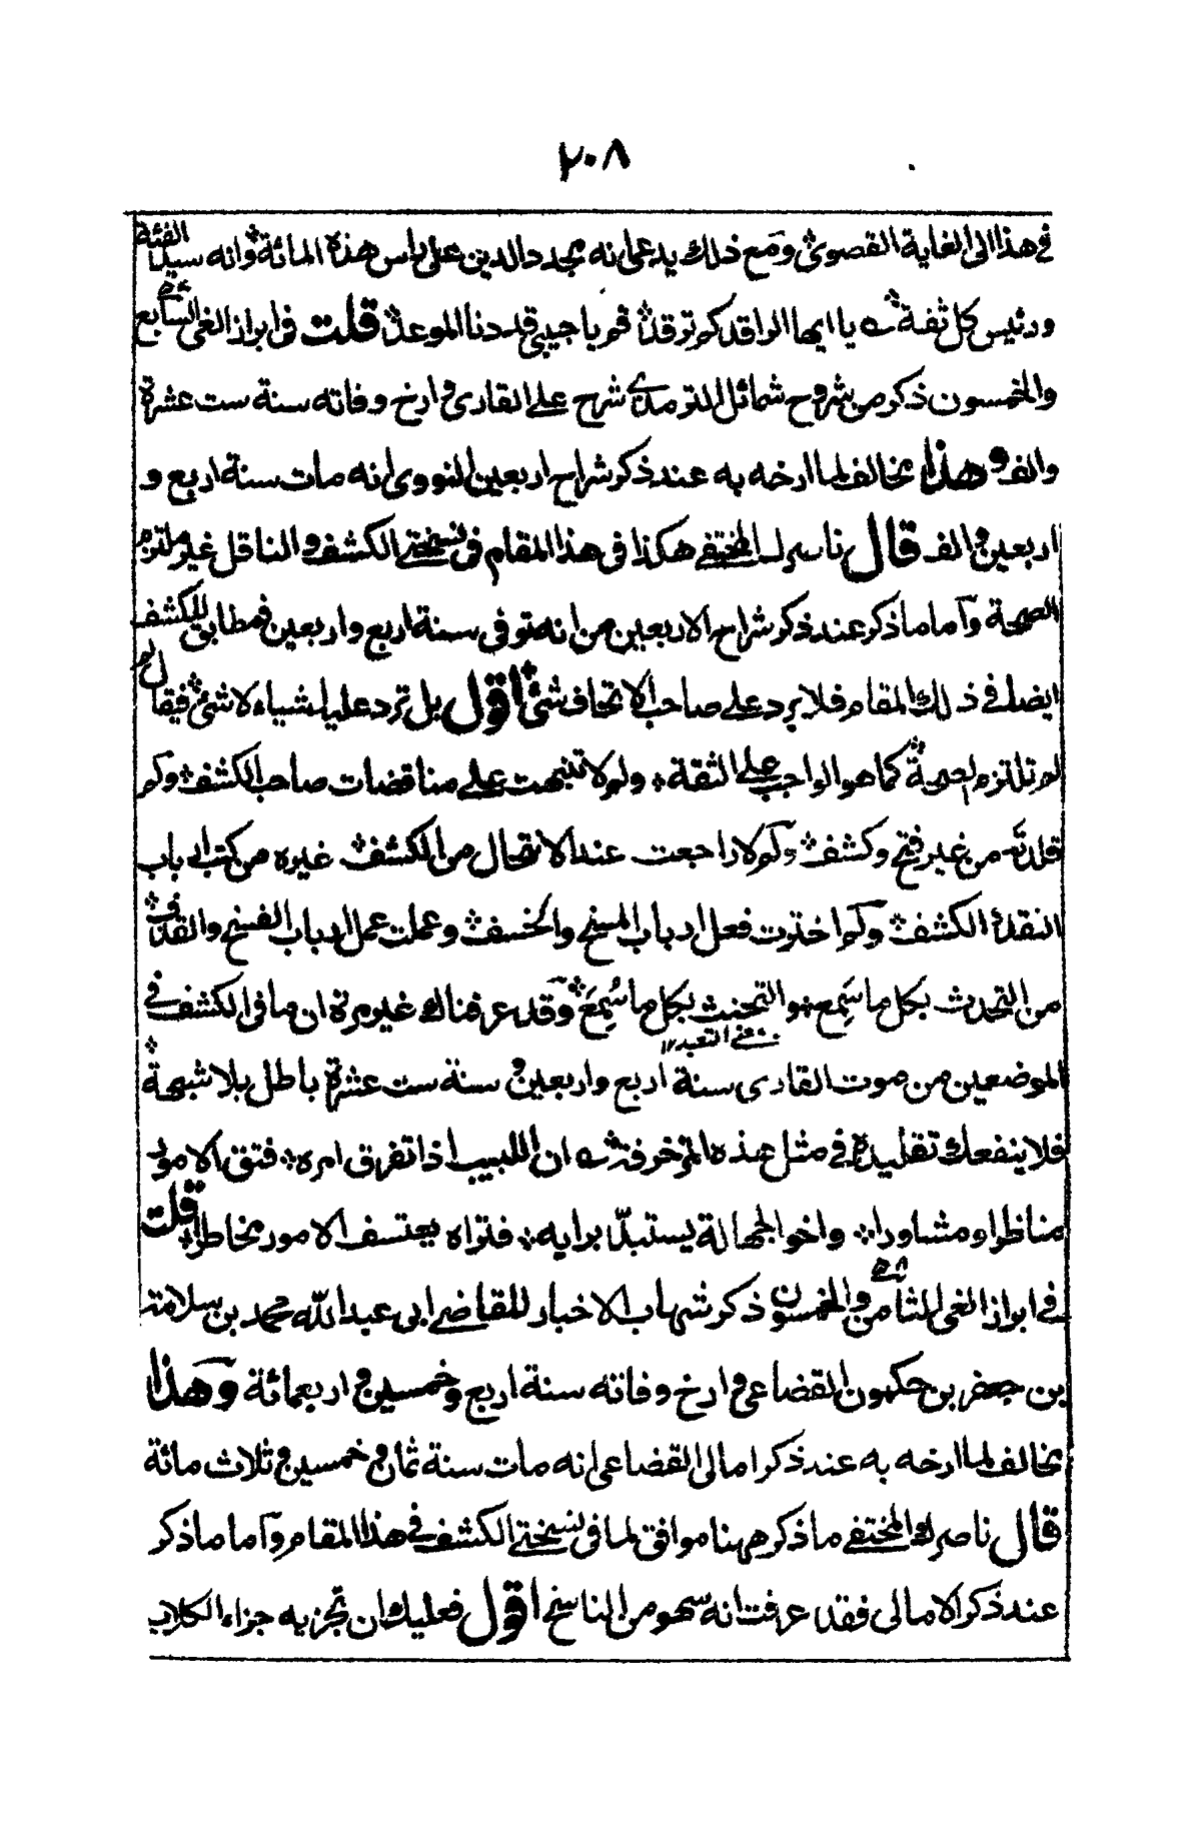 ٢٠٨
في هذا الى الغاية القصوى ومع ذلك يدعى انه مجدد الدين على راس هذه المائة وانه سيد الفئة
ورئيس كل ثقة ؎ يا ايها الراقد كم ترقد قم يا حبيبي قد دنا الموعد قلت في ابراز الغي السابع
والخمسون ذكر من شروح شمائل الترمذي شرح علي القاري وارخ وفاته سنة ست عشرة
والف وهذا يخالف لما ارخه به عند ذكر شراح اربعين النووي انه مات سنة اربع و
اربعين والف قال ناصرك المختفي هكذا في هذا المقام في نسختي الكشف والناقل غير ملتزم
الصحة وآما ما ذكر عند ذكر شراح الاربعين من انه توفي سنة اربع واربعين فمطابق للكشف
ايضا في ذلك المقام فلا يرد على صاحب الاتحاف شئ اقول بل ترد عليه اشياء لا شئ فيقال لم
لم تلتزم الصحة كما هو الواجب على الثقة ولم لا تنبهت على مناقضات صاحب الكشف وكم
قلدته من غير فتح وكشف ولم لا راجعت عند الانتحال من الكشف غيره من كتب ارباب
النقد والكشف وكم اخترت فعل ارباب المسخ والخسف وعملت عمل ارباب الفسخ والقذف
من التحدث بكل ما سَمِع والتحنث بكل ما سُمِعَ وقد عرفناك غير مرة ان ما في الكشف في
بمعنى التعبد ١٢
الموضعين من موت القاري سنة اربع واربعين و سنة ست عشرة باطل بلا شبهة
فلا ينفعك تقليده في مثل هذه المزخرفة ؎ ان اللبيب اذا تفرق امره فتق الامور
مناظرا ومشاورا واخو الجهالة يستبدّ برايه فتراه يعتسف الامور مخاطرا قلت
في ابراز الغي الثامن والخمسون ذكر شهاب الاخبار للقاضي ابي عبد الله محمد بن سلامة
بن جعفر بن حكمون القضاعي وارخ وفاته سنة اربع وخمسين واربعمائة وهذا
يخالف لما ارخه به عند ذكر امالي القضاعي انه مات سنة ثمان وخمسين وثلاث مائة
قال ناصرك المختفي ما ذكر ههنا موافق لما في نسختي الكشف في هذا المقام وآما ما ذكر
عند ذكر الامالي فقد عرفت انه سهو من الناسخ اقول فعليك ان تجزيه جزاء الكلاب